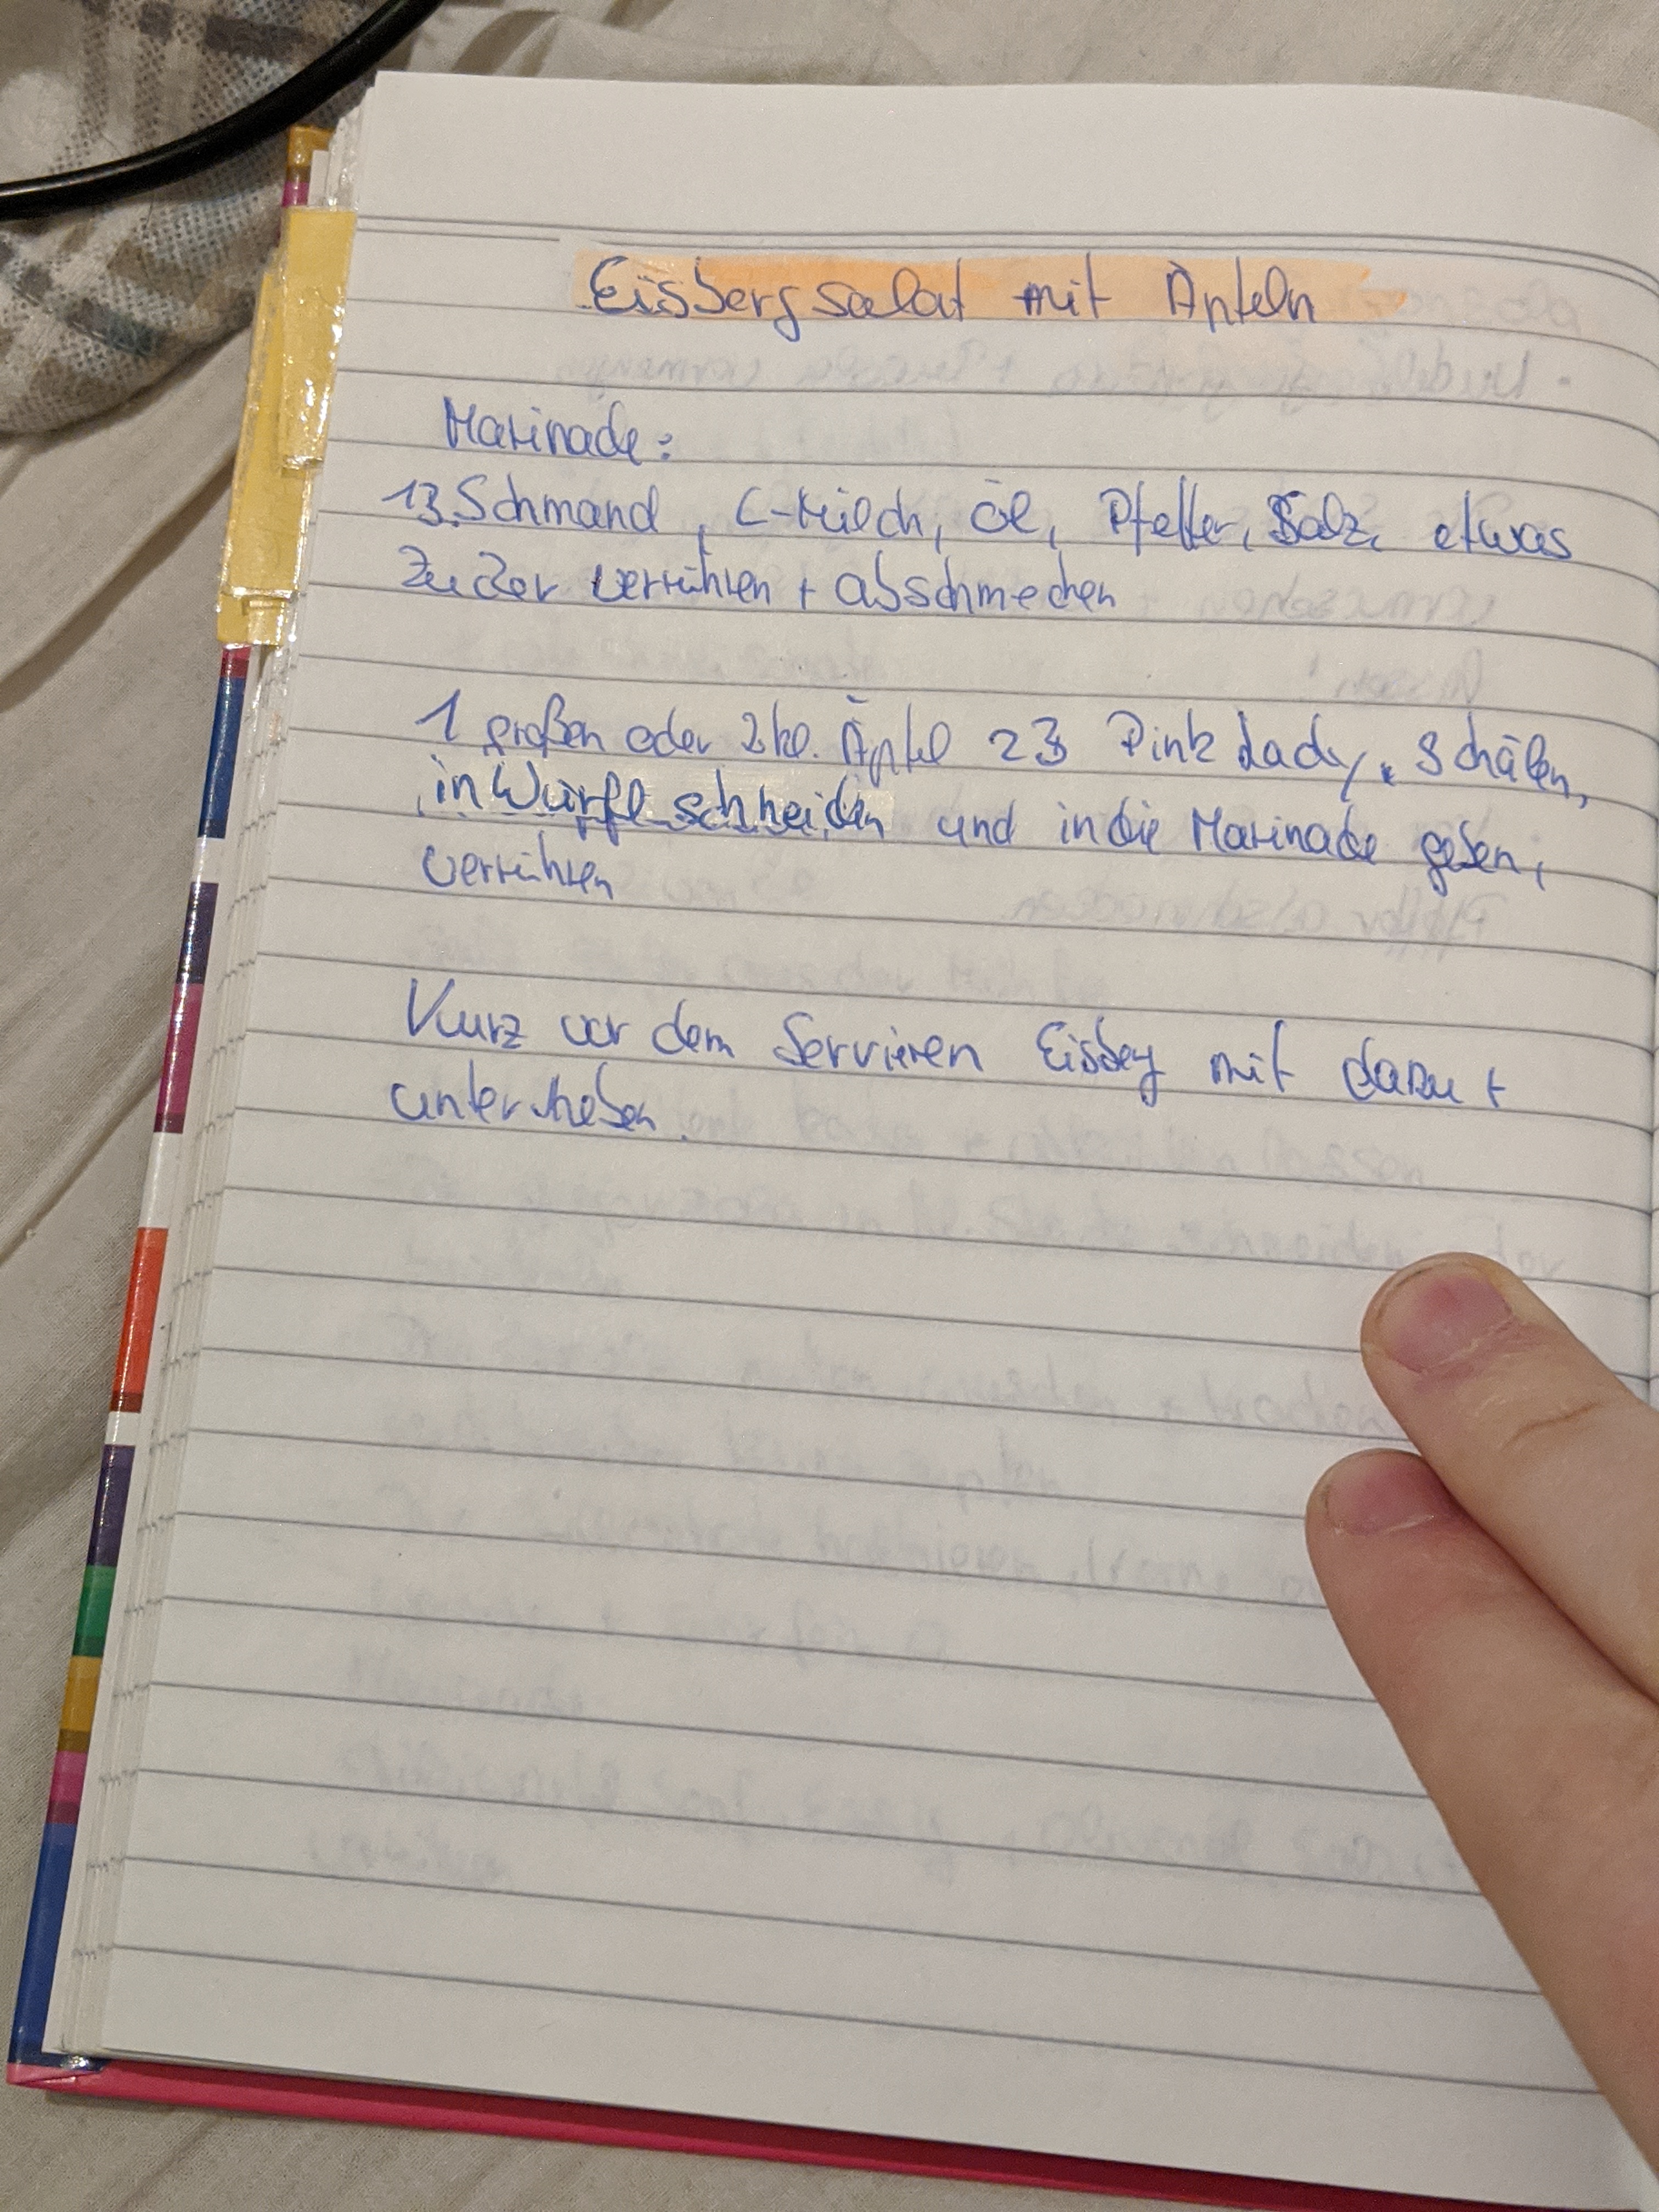 Eisbergsalat mit Äpfeln
Marinade:
1 B. Schmand, C-Milch, Öl, Pfeffer, Salz, etwas
Zucker verrühren + abschmecken
1 großen oder 2 kl. Äpfel z B Pink Lady, schälen,
in Würfel schneiden und in die Marinade geben,
verrühren
Kurz vor dem Servieren Eisberg mit dazu +
unterheben.